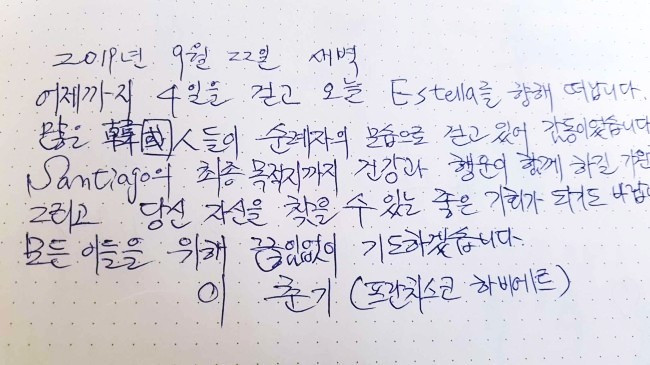 2019년 9월 22일 새벽
어제까지 4일을 걷고 오늘 Estella를 향해 떠납니다.
많은 韓國人들이 순례자의 모습으로 걷고 있어 감동이었습니다
Santiago의 최종 목적지까지 건강과 행운이 함께 하길 기원
그리고 당신 자신을 찾을 수 있는 좋은 기회가 되기도 바랍니
모든 이들을 위해 끊임없이 기도하겠습니다.
이 춘기 (프란치스코 하비에르)